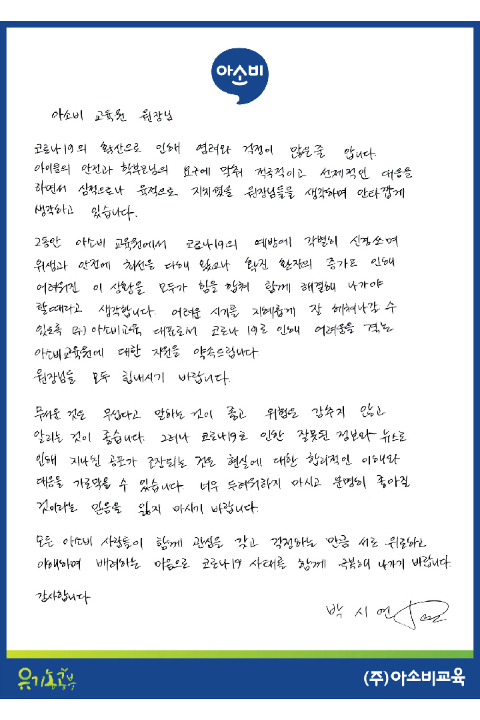 아소비
아소비 교육원 원장님
코로나19의 확산으로 인해 염려와 걱정이 많은줄 압니다.
아이들의 안전과 학부모님의 요구에 맞춰 적극적이고 선제적인 대응을
하면서 심적으로나 육적으로 지치셨을 원장님들을 생각하며 안타깝게
생각하고 있습니다.
그동안 아소비 교육원에서 코로나19의 예방에 각별히 신경쓰며
위생과 안전에 최선을 다해 왔으나 확진 환자의 증가로 인해
어려워진 이 상황을 모두가 힘을 합쳐 함께 해결해 나가야
할때라고 생각합니다. 어려운 시기를 지혜롭게 잘 헤쳐나갈 수
있도록 (주)아소비교육 대표로서 코로나 19로 인해 어려움을 겪는
아소비교육원에 대한 지원을 약속드립니다
원장님들 모두 힘내시기 바랍니다.
무서운 것은 무섭다고 말하는 것이 좋고 위험은 감추지 않고
알리는 것이 좋습니다. 그러나 코로나19로 인한 잘못된 정보와 뉴스로
인해 지나친 공포가 조장되는 것은 현실에 대한 합리적인 이해와
대응을 가로막을 수 있습니다 너무 두려워하지 마시고 분명히 좋아질
것이라는 믿음을 잃지 마시기 바랍니다.
모든 아소비 사람들이 함께 관심을 갖고 걱정하는 만큼 서로 위로하고
이해하며 배려하는 마음으로 코로나19 사태를 함께 극복해 나가기 바랍니다.
감사합니다
박 시 연
(주)아소비교육